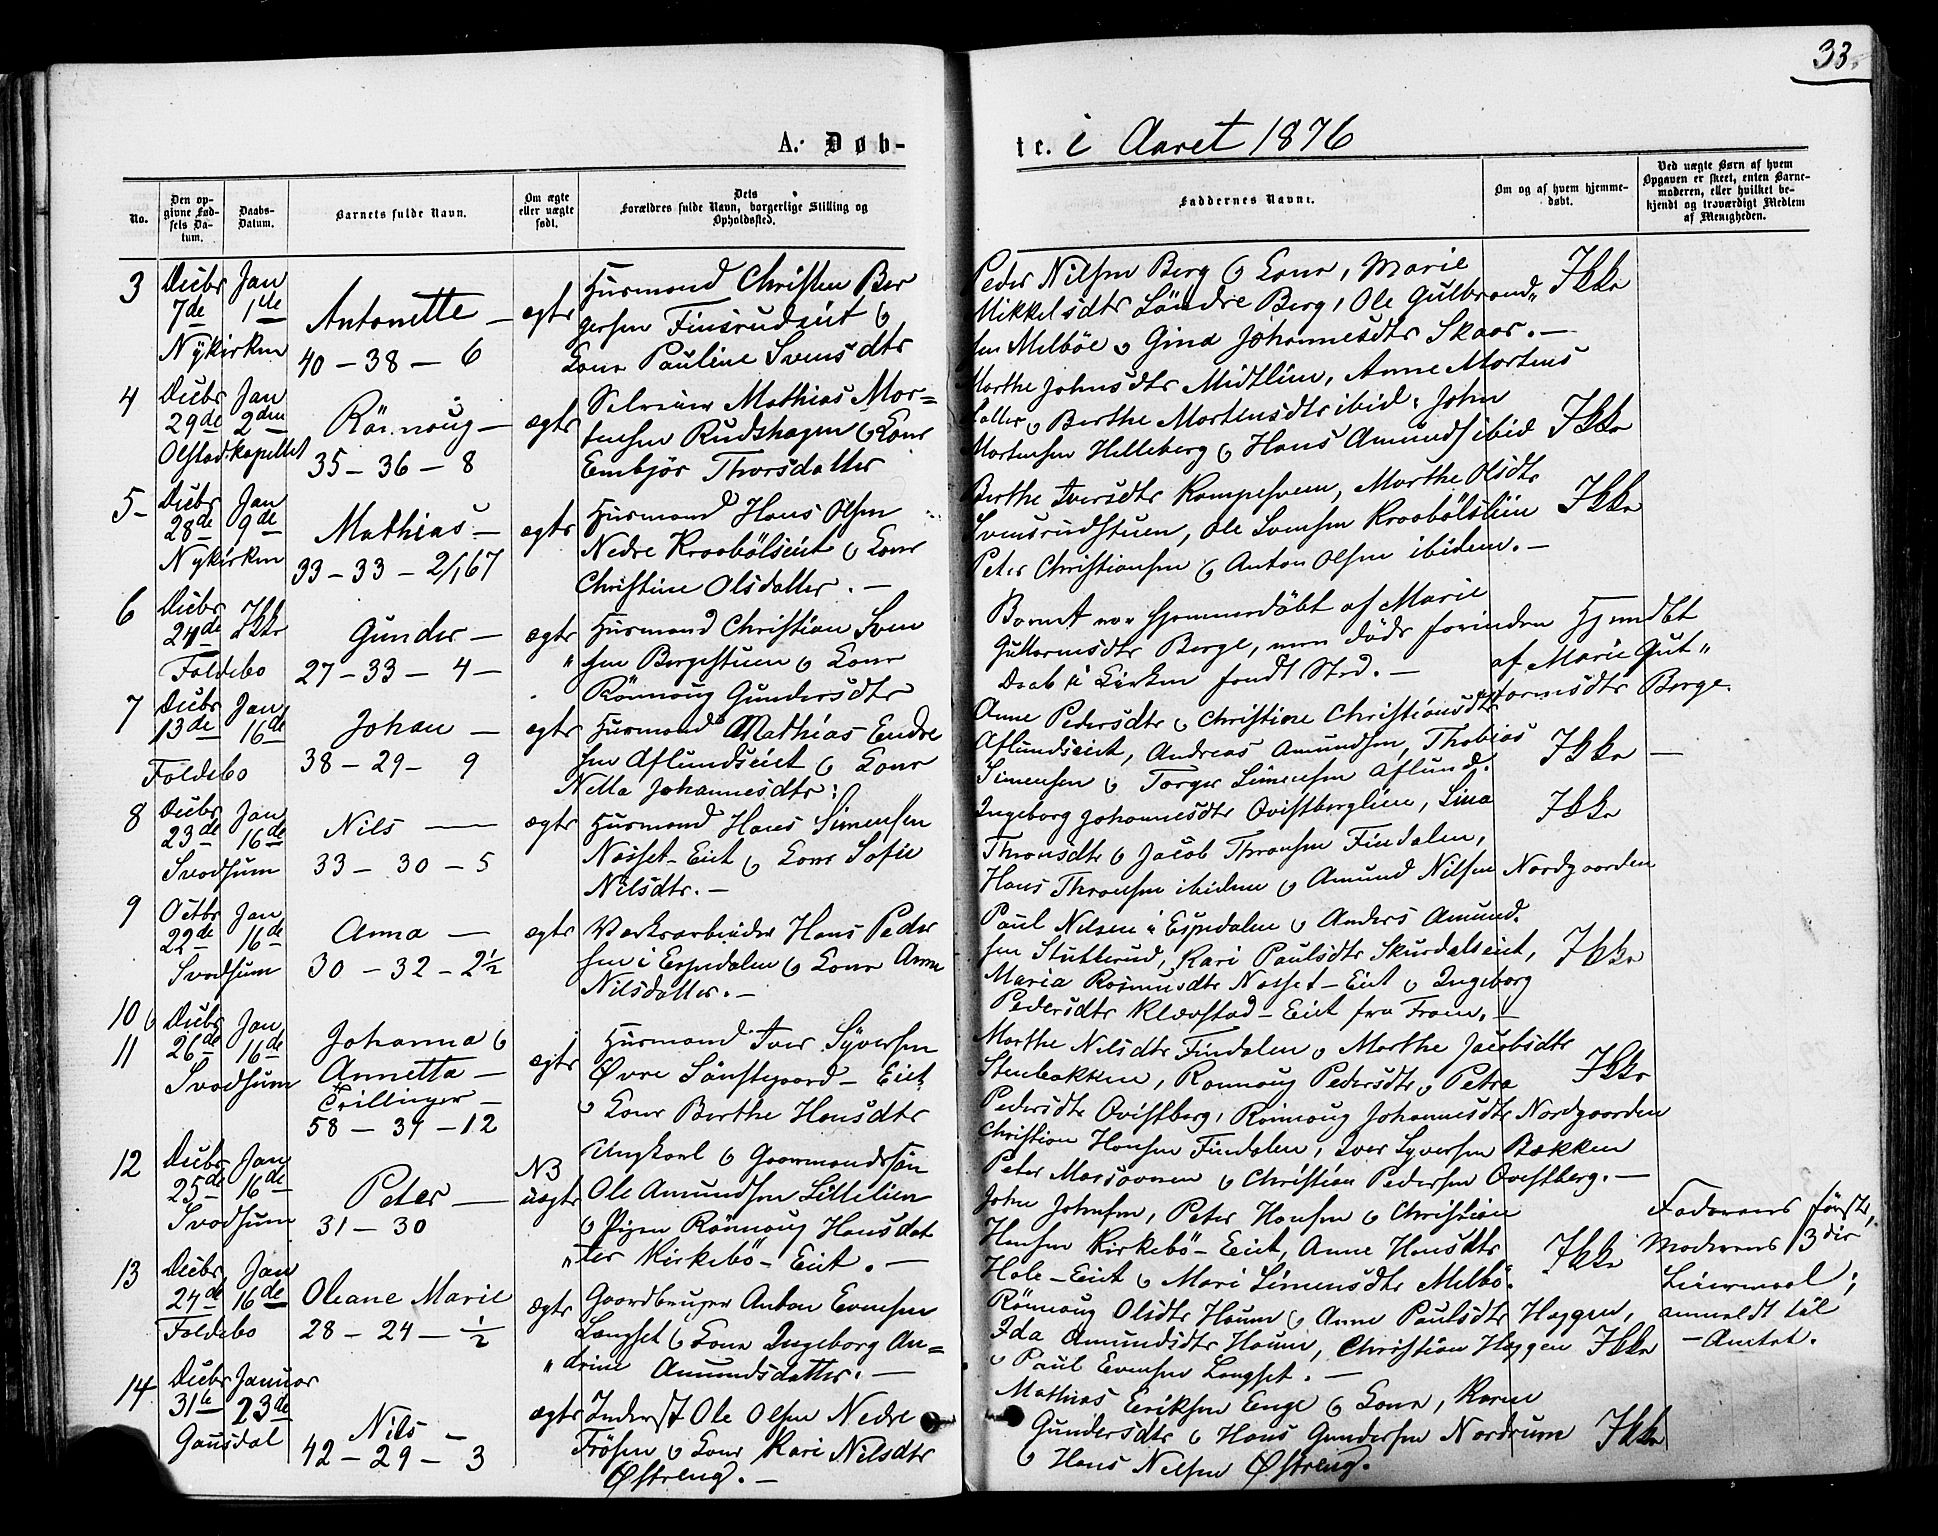 33.
A. Døb-
te. i Aaret 1876
No.
Den op-
givne Fød-
sels Da-
tum.
Daabs-
Datum.
Barnets fulde Navn.
Om ægte
eller uægte
født.
Dets
Forældres fulde Navn, borgerlige Stilling og
Opholdssted.
Faddernes Navne.
Om og af hvem hjemme-
døbt.
Ved uægte Børn af hvem
Opgaven er skeet, enten Barne-
moderen, eller hvilket be-
kjendt og troværdigt Medlem
af Menigheden.
3
Decbr
7de
Nykirken
Jan
1ste
Antonette —
40 – 38 – 6
ægte
Husmand Christen Ber
gersen Finsrudeiet &
Kone Pauline Svensdtr
Peder Nilsen Berg & Kone, Marie
Mikkelsdtr Söndre Berg, Ole Gulbrand„
sen Melböe & Gina Johannesdtr Skaar. —
Ikke
4
Decbr
29de
Olstad kapellet
Jan
2den
Rönnoug —
35 – 36 – 8
ægte
Selveier Mathias Mor=
tensen Rudshagen & Kone
Embjör Thorsdatter
Marthe Johnsdtr Midtlien, Anne Mortens
datter & Berthe Mortensdtr ibid. John
Mortensen Helleberg & Hans Amunds ibid
Ikke
5 –
Decbr
28de
Nykirken
Jan
9de
Mathias —
33 – 33 – 2/167
ægte
Husmand Hans Olsen
Nedre Kraabölseiet & Kone
Christine Olsdatter. —
Berthe Iversdtr Kampesveen, Marthe Olsdtr
Svensrudstuen, Ole Svensen Kraabölslien
Peter Christiansen & Anton Olsen ibidem. —
Ikke
6
Decbr
24de
Foldebo
Ikke
Gunder —
27 – 33 – 4 –
ægte
„
Husmand Christian Sven
sen Bergestuen & Kone
Rönnoug Gundersdtr
Barnet var hjemmedöbt af Marie
Guttormsdtr Berge, men döde forinden
Daab i Kirken fandt Sted. —
Hjemdöbt
af Marie Gut„
tormsdtr Berge.
7
Decbr
13de
Foldebo
Jan
16de
Johan —
38 – 29 – 9
ægte
Husmand Mathias Endre
sen Aflundseiet & Kone
Nella Johannesdtr:
Anne Pedersdtr & Christine Christiansdtr
Aflundseiet, Andreas Amundsen, Thobias
Simensen & Torger Simensen Aflund.
Ikke —
8
Decbr
23de
Svadsum
Jan
16de
Nils —
33 – 30 – 5
ægte
Husmand Hans Simensen
Nosset-Eiet & Kone Sofie
Nilsdtr. —
Ingeborg Johannesdtr Qvistberglien, Lina
Thronsdtr & Jacob Thronsen Findalen,
Hans Thronsen ibidem & Amund Nilsen Nordgaarden
Ikke
9
Octbr
22de
Svadsum
Jan
16de
Anna —
30 – 32 – 2½
ægte
Værksarbeider Hans Peder
sen i Espedalen & Kone Anne
Nilsdatter. —
Paul Nilsen i Espedalen & Anders Amund.
sen Stutterud, Kari Paulsdtr Skurdalseiet,
Maria Rasmusdtr Nosset-Eiet & Ingeborg
Pedersdtr Klævstad-Eiet fra Fron. —
Ikke
10 &
11
Decbr
26de
Svadsum
Jan
16de
Johanna &
Annetta —
Tvillinger —
58 – 39 – 12
ægte
Husmand Iver Syversen
Øvre Sönstegaard-Eiet
& Kone Berthe Hansdtr
Marthe Nilsdtr Findalen & Marthe Jacobsdtr
Stenbakken, Rönnoug Pedersdtr & Petra
Pedersdtr Qvistberg, Rönnoug Johannesdtr Nordgaarden
Christian Hansen Findalen, Iver Syversen Bækken
Peter & Christian Pedersen Qvistberg. —
Ikke
12
Decbr
25de
Svadsum
Jan
16de
Peter —
31 – 30
NB
uægte
Ungkarl & Gaardmandssön
Ole Amundsen Lillelien
& Pigen Rönnoug Hansdat
„ter Kirkebö-Eiet. —
John Johnsen, Peter Hansen & Christian
Hansen Kirkebö-Eiet, Anne Hansdtr
Hole-Eiet & Mari Simensdtr Melbö.
Ikke
Faderens förste,
Moderens 3die
Leiermaal;
anmeldt til
— Amtet.
13
Decbr
24de
Foldebo
Jan
16de
Oleane Marie
28 – 24 – ½
ægte
Gaardbruger Anton Evensen
Longset & Kone Ingeborg An=
„drine Amundsdatter. —
Rönnoug Olsdtr Haum & Anne Paulsdtr Haggen,
Ida Amundsdtr Haum, Christian Haggen
& Paul Evensen Longset. —
Ikke
14
Decbr
31te
Gausdal
Januar
23de
Nils —
42 – 29 – 3
ægte
Inderst Ole Olsen Nedre
Frösen & Kone Kari Nilsdtr
Østreng. —
Mathias Eriksen Enge & Kone, Karen
Gundersdtr & Hans Gundersen Nordrum
& Hans Nilsen Østreng.
Ikke